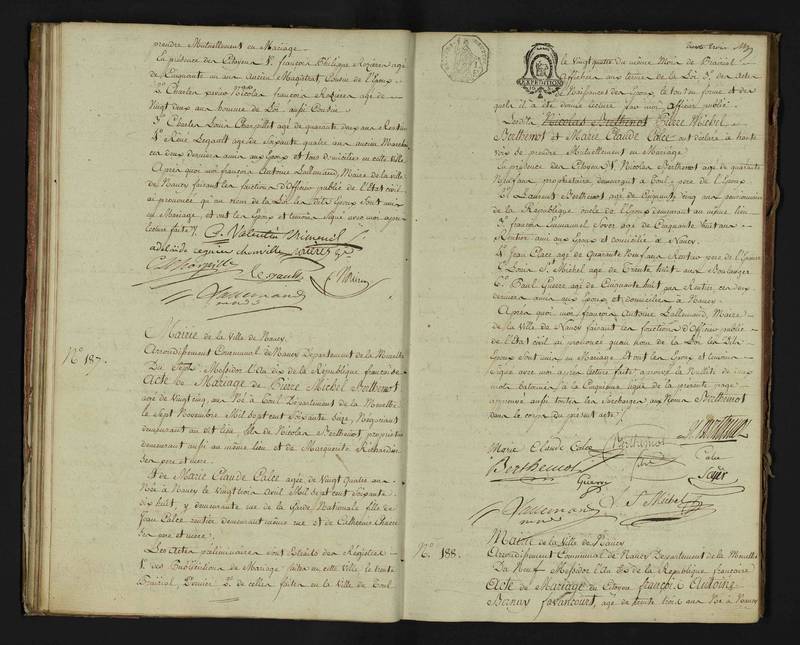 prendre Mutuellement en Mariage.
En présence des Citoyens 1° françois Philippe Rozières agé
de Cinquante un ans Ancien Magistrat, Cousin de l'Epoux
2° Charles Nicolas françois Rozières agé de
Vingt deux ans homme de Loi aussi Cousin
3° Charles Louis agé de quarante deux ans Rentier
4° Réné Legault agé de Soixante quatre ans ancien Marchand
ces deux derniers amis aux Epoux et tous domiciliés en cette Ville
Après quoi moi françois Antoine Lallemand, Maire de la ville
de Nancy faisant les fonctions d'Officier public de l'Etat civil
ai prononcé qu'au nom de la Loi les dits Epoux sont unis
en Mariage, et ont les Epoux et témoins signé avec moi après
lecture faite
Lallemand
N° 187.
Mairie de la Ville de Nancy.
Arrondissement Communal de Nancy Departement de la Meurthe
Du Sept Messidor l'An dix de la République françoise
Acte de Mariage de Pierre Michel Berthemot
agé de Vingt cinq ans Né à Toul Departement de la Meurthe
le Sept Novembre Mil sept cent Soixante Seize, Négociant
demeurant au dit lieu, fils de Nicolas Berthemot propriétaire
demeurant aussi au même lieu et de Marguerite Richardin
ses pere et mere.
Et de Marie Claude Calce agée de Vingt quatre ans
Née à Nancy le Vingt trois Avril Mil Sept cent Soixante
dix huit, y demeurante rue de la Garde Nationale fille de
Jean Calce rentier demeurant même rue et de Catherine
ses pere et mere.
Les Actes préliminaires sont Extraits des Registres
1° des Publications de Mariage faites en cette Ville le trente
Prairial, de celles faites en la Ville de Toul
EXPEDITION
le Vingt quatre du même Mois de Prairial
Affichées aux termes de la Loi 3° des Actes
de Naissances des Epoux, le tout en forme et des
quels il a été donné lecture par moi officier public.
Les dits Nicolas Berthemot Pierre Michel
Berthemot et Marie Claude Calce ont déclaré à haute
voix se prendre Mutuellement en Mariage.
En présence des Citoyens 1° Nicolas Berthemot agé de quarante
Neuf ans propriétaire, demeurant à Toul, pere de l'Epoux
2° Laurent Berthemot agé de Cinquante cinq ans pensionnaire
de la République oncle de l'Epoux demeurant au même lieu
3° françois Emmanuel Soyer agé de Cinquante huit ans
Rentier ami aux Epoux et domicilié à Nancy.
4° Jean Calce agé de quarante Neuf ans Rentier pere de l'Epouse
5° Louis St Michel agé de Trente huit ans Boulanger
6° Paul Guerre agé de Cinquante huit ans Rentier, ces deux
derniers amis aux Epoux et domiciliés à Nancy
Après quoi moi françois Antoine Lallemand, Maire
de la Ville de Nancy faisant les fonctions d'Officier public
de l'Etat civil ai prononcé qu'au nom de la Loi les dits
Epoux sont unis en Mariage et ont les Epoux et témoins
Signé avec moi après lecture faite approuvé la Nullité de deux
mots batonnés à la Cinquieme ligne de la présente page
approuvé aussi toutes les surcharges aux Noms Berthemot
dans le corps du présent acte
Marie Claude Calce Berthemot
Berthemot
Calce
Soyer
Lallemand
St Michel
N° 188.
Mairie de la Ville de Nancy
Arrondissement Communal de Nancy Departement de la Meurthe
Du Neuf Messidor l'An dix de la République françoise
Acte de Mariage du Citoyen françois Antoine
Bernay favancourt, agé de trente trois ans Né à Nancy